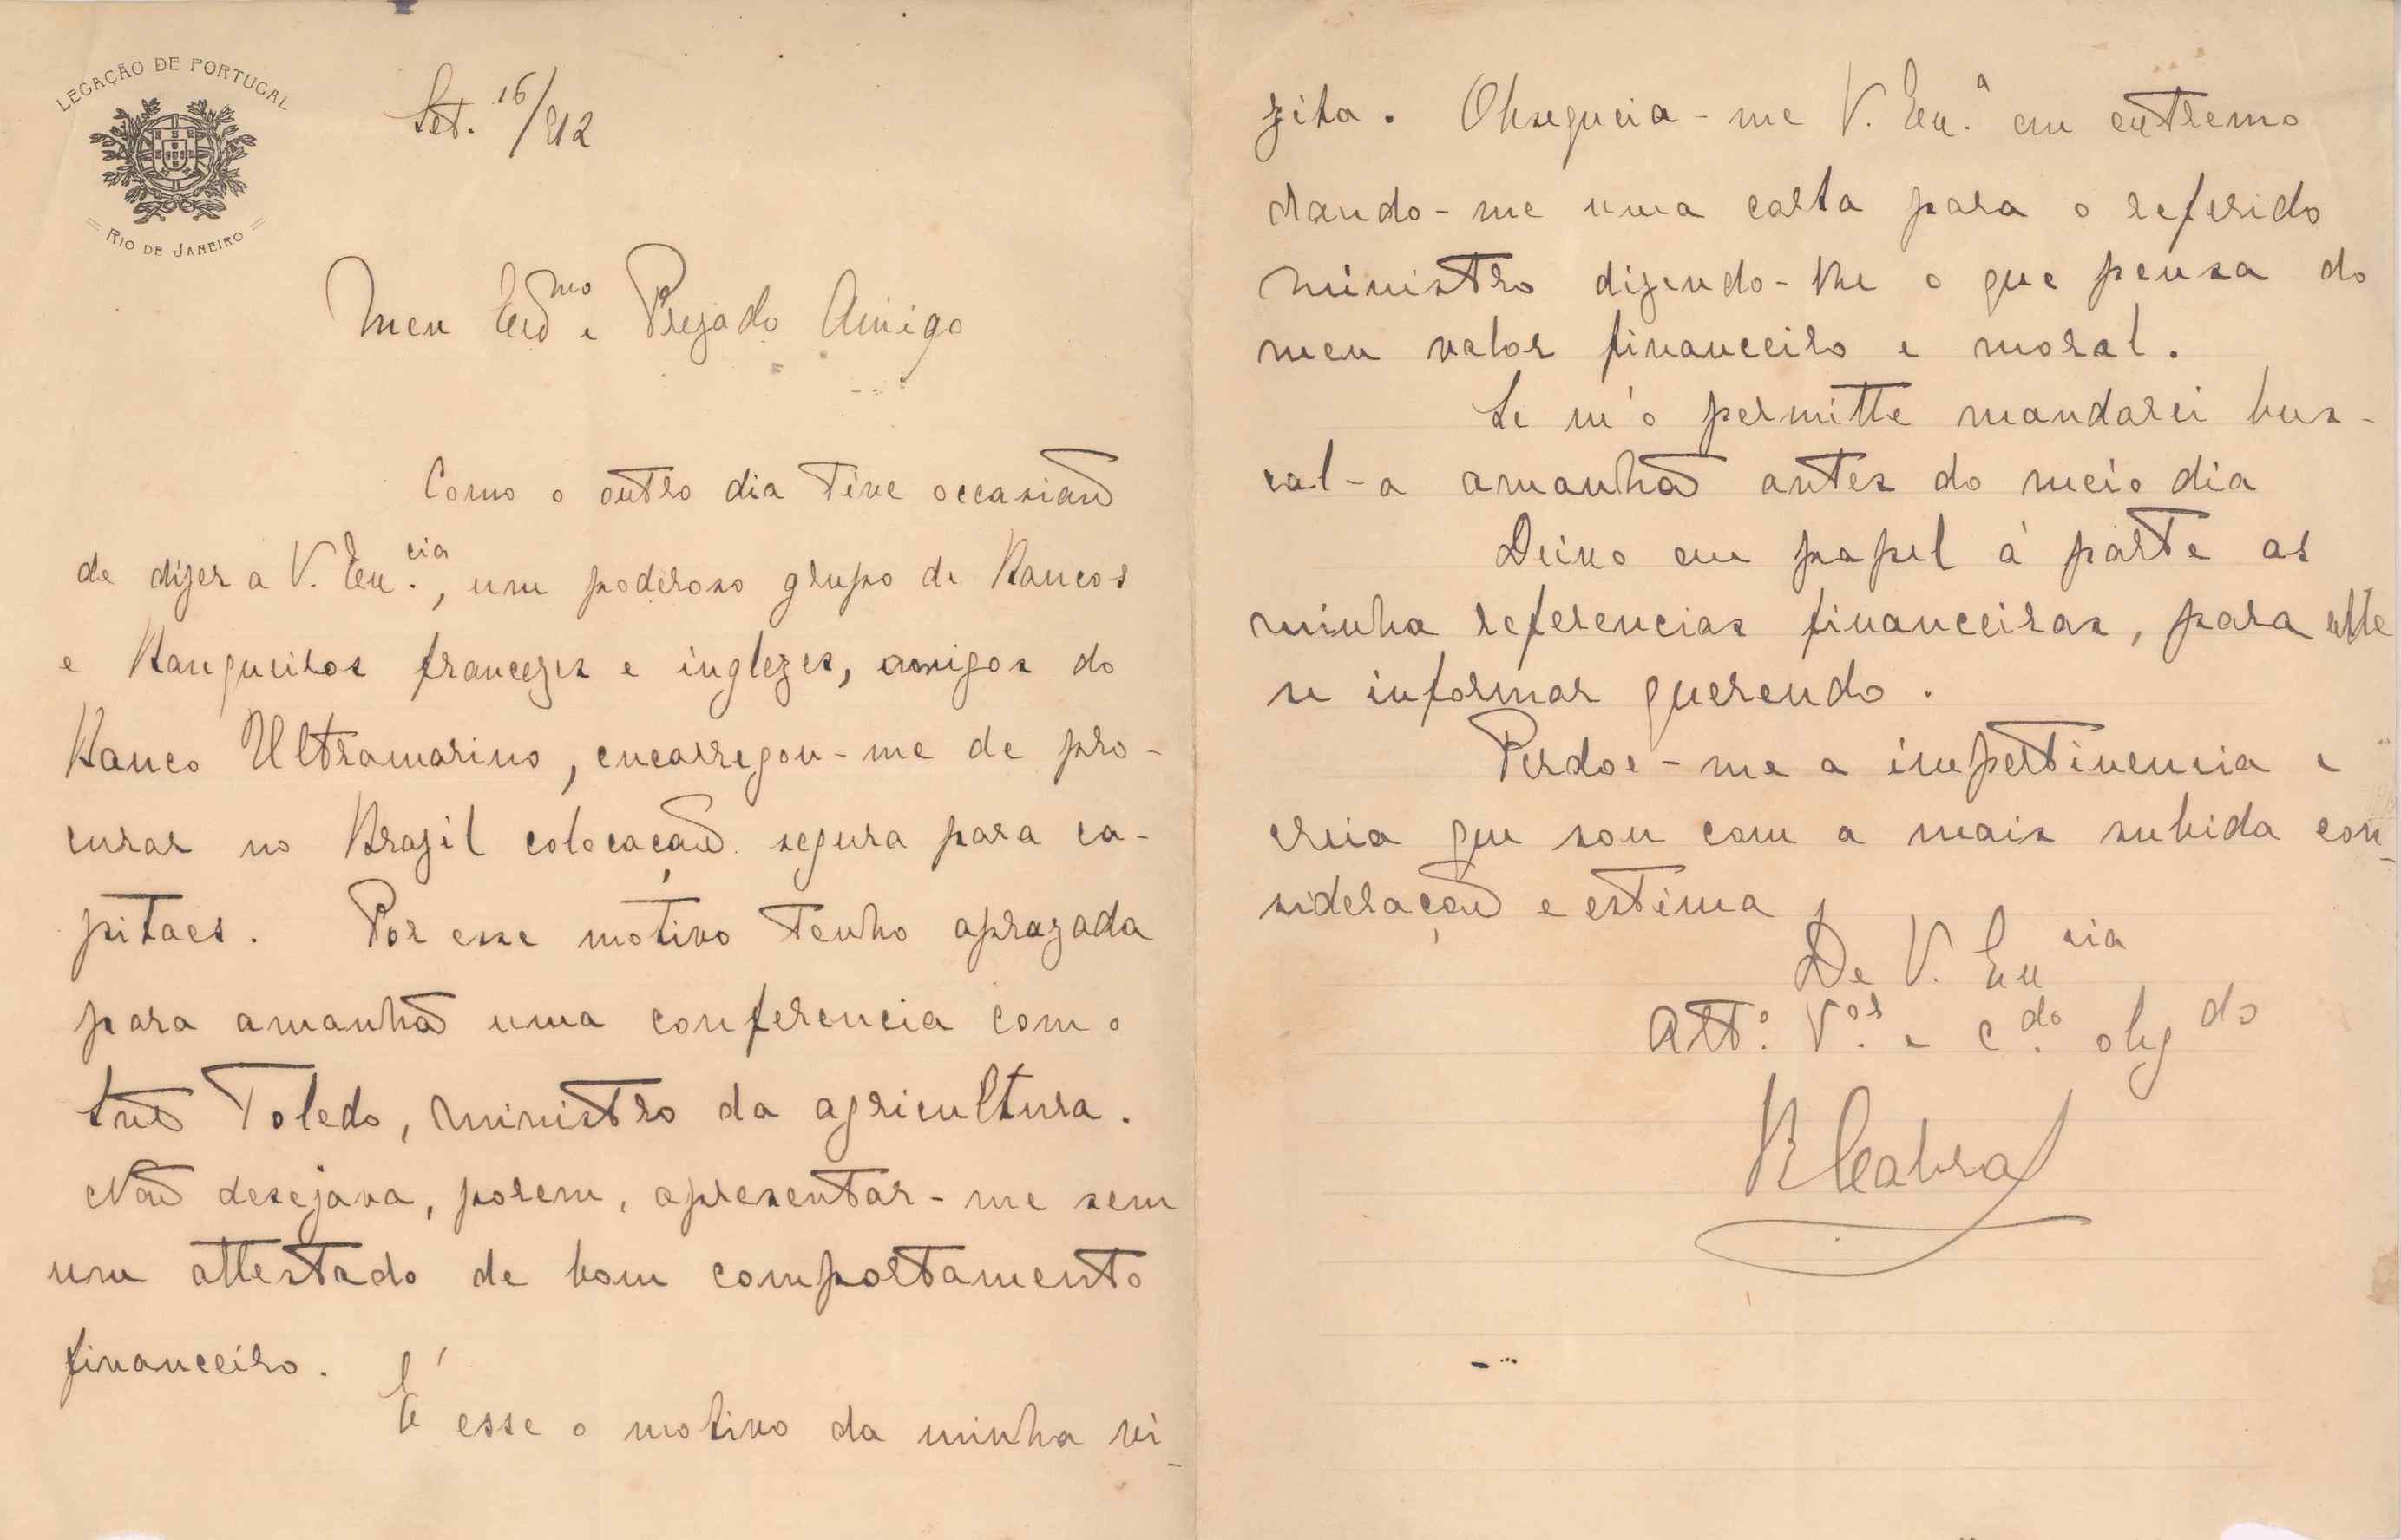 LEGAÇÃO DE PORTUGAL
RIO DE JANEIRO
Set. 16/912
Meu Exmo e Prezado Amigo
Como o outro dia tive occasião
de dizer a V. Ex.cia, um poderoso grupo de Bancos
e Banqueiros francezes e inglezes, amigos do
Banco Ultramarino, encarregou-me de pro-
curar no Brazil colocação segura para ca-
pitaes. Por esse motivo tenho aprazada
para amanhã uma conferencia com o
Toledo, ministro da agricultura.
Não desejava, porem, apresentar-me sem
um attestado de bom comportamento
financeiro.
É esse o motivo da minha vi-
zita. Obsequeia-me V. Ex.a em extremo
dando-me uma carta para o referido
ministro dizendo-lhe o que pensa do
meu valor financeiro e moral.
Se m'o permitte mandarei bus-
cal-a amanhã antes do meio dia
Deixo em papel á parte as
minha referencias financeiras, para elle
se informar querendo.
Perdoe-me a impertinencia e
creia que sou com a mais subida con-
sideração e estima
De V. Excia
Att.o V.or e c.do obgdo
B Cabral